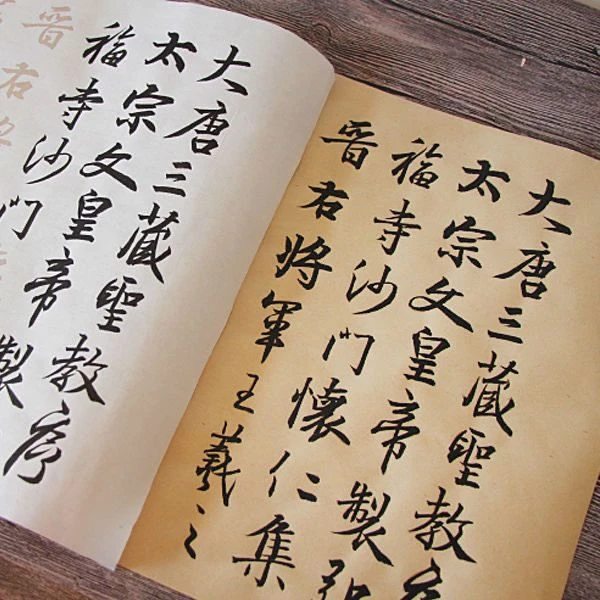 大唐三藏聖教序
太宗文皇帝製弘
福寺沙門懷仁集
晉右將軍王羲之
大唐三藏聖教序
太宗文皇帝製
福寺沙門
晉右將